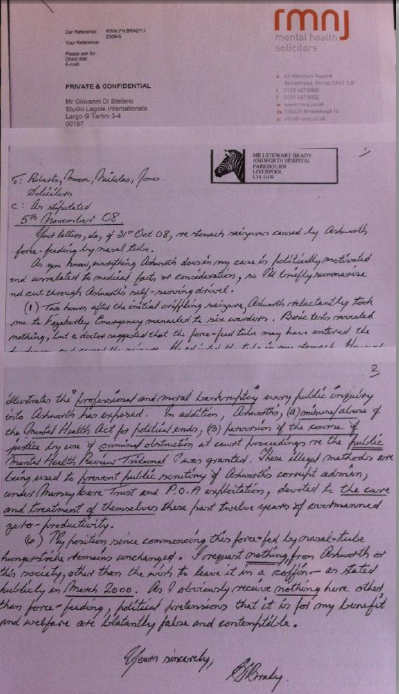 Our Reference: RMN.FN.BRADY.I
2009-5
Your Reference:
Please ask for:
Direct dial:
E-mail:
rmnj
mental health
solicitors
PRIVATE & CONFIDENTIAL
Mr Giovanni Di Stefano
Studio Legale Internationale
Largo G Tartini 3-4
00187
MR I STEWART-BRADY
ASHWORTH HOSPITAL
PARKBOURN
LIVERPOOL
To: Roberts, Moore, Nicholas, Jones.
Solicitors
C: As stipulated
5th November 08
Your letters, etc, of 31st Oct 08, re stomach seizures caused by Ashworth
force-feeding by nasal tube.
As you know everything Ashworth does in my case is politically motivated
and unrelated to medical facts or consideration, so I'll briefly summarise
and cut through Ashworth's self-serving drivel.
(1) Two hours after the initial crippling seizure, Ashworth reluctantly took
me to Fazakerley Emergency manacled to six warders. Basic tests revealed
nothing, but a doctor suggested that the force-feed tube may have entered the
2
illustrates the "professional and moral bankruptcy" every public inquiry
into Ashworth has exposed. In addition, Ashworth's, (a) misuse/abuse of
the Mental Health Act for political ends, (b) perversion of the course of
justice by use of criminal obstruction at court proceedings re the public
Mental Health Review Tribunal I was granted. These illegal methods are
being used to prevent public scrutiny of Ashworth's corrupt admin,
under Merseycare Trust and P.O.A exploitation, devoted to the care
and treatment of themselves these past twelve years of overmanned
zero-productivity.
(6) My position since commencing this force-fed by nasal-tube
hunger strike remains unchanged. I request nothing from Ashworth or
this society, other than the wish to leave it in a coffin - as stated
publicly in March 2000. As I obviously receive nothing here other
than force-feeding, political pretensions that it is for my benefit
and welfare are blatantly false and contemptible.
Yours sincerely,